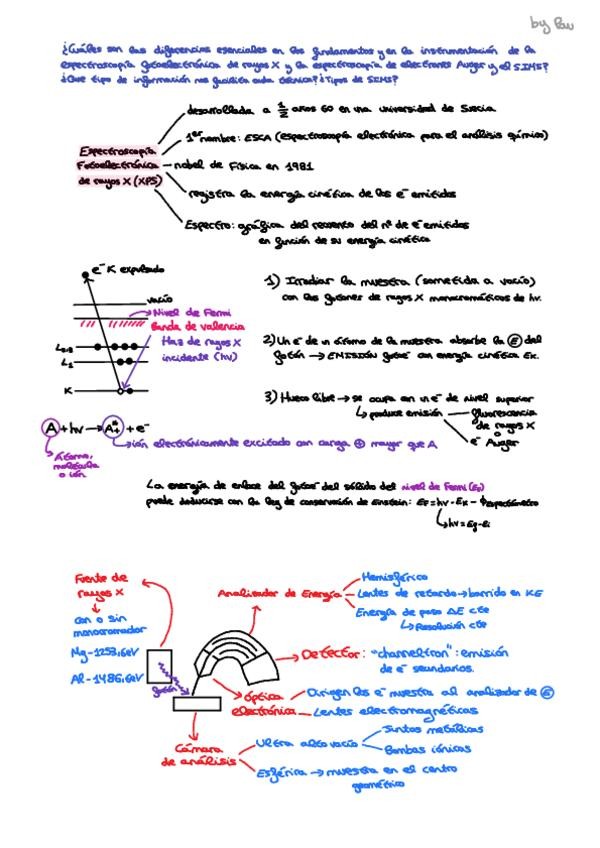 by Pau
¿Cuáles son las diferencias esenciales en los fundamentos y en la instrumentación de la
espectroscopía fotoelectrónica de rayos X y la espectroscopía de electrones Auger y el SIMS?
¿Qué tipo de información nos facilita cada técnica? ¿Tipos de SIMS?
desarrollada a 1/2 años 60 en una universidad de Suecia
1er nombre: ESCA (espectroscopía electrónica para el análisis químico)
Espectroscopía
Fotoelectrónica
de rayos X (XPS)
nobel de Física en 1981
registra la energía cinética de los e⁻ emitidos
Espectro: gráfica del recuento del nº de e⁻ emitidos
en función de su energía cinética
e⁻ K expulsado
vacío
Nivel de Fermi
Banda de valencia
Haz de rayos X
incidente (hv)
L2-3
L1
K
1) Irradiar la muestra (sometida a vacío)
con los fotones de rayos X monocromáticos de hv.
2) Un e⁻ de un átomo de la muestra absorbe la E del
fotón → EMISIÓN fotoe⁻ con energía cinética Ek.
3) Hueco libre → se ocupa con un e⁻ de nivel superior
produce emisión
fluorescencia
de rayos X
o
e⁻ Auger
A + hv → A+* + e⁻
ión electrónicamente excitado con carga ⊕ mayor que A
Átomo,
molécula
o ión
La energía de enlace del fotoe⁻ del sólido del nivel de Fermi (EF)
puede deducirse con la ley de conservación de Einstein: EF = hv - Ek - ϕespectrómetro
hv = Ef - Ei
Fuente de
rayos X
con o sin
monocromador
Mg - 1253,6eV
Al - 1486,6eV
fotón
Analizador de Energía
Hemisférico
Lentes de retardo → barrido en KE
Energía de paso ΔE cte
Resolución cte
Detector: "channeltron": emisión
de e⁻ secundarios.
óptica
electrónica
Dirigen los e⁻ muestra al analizador de E
Lentes electromagnéticas
Cámara
de análisis
Ultra alto vacío
Juntas metálicas
Bombas iónicas
Esférica → muestra en el centro
geométrico